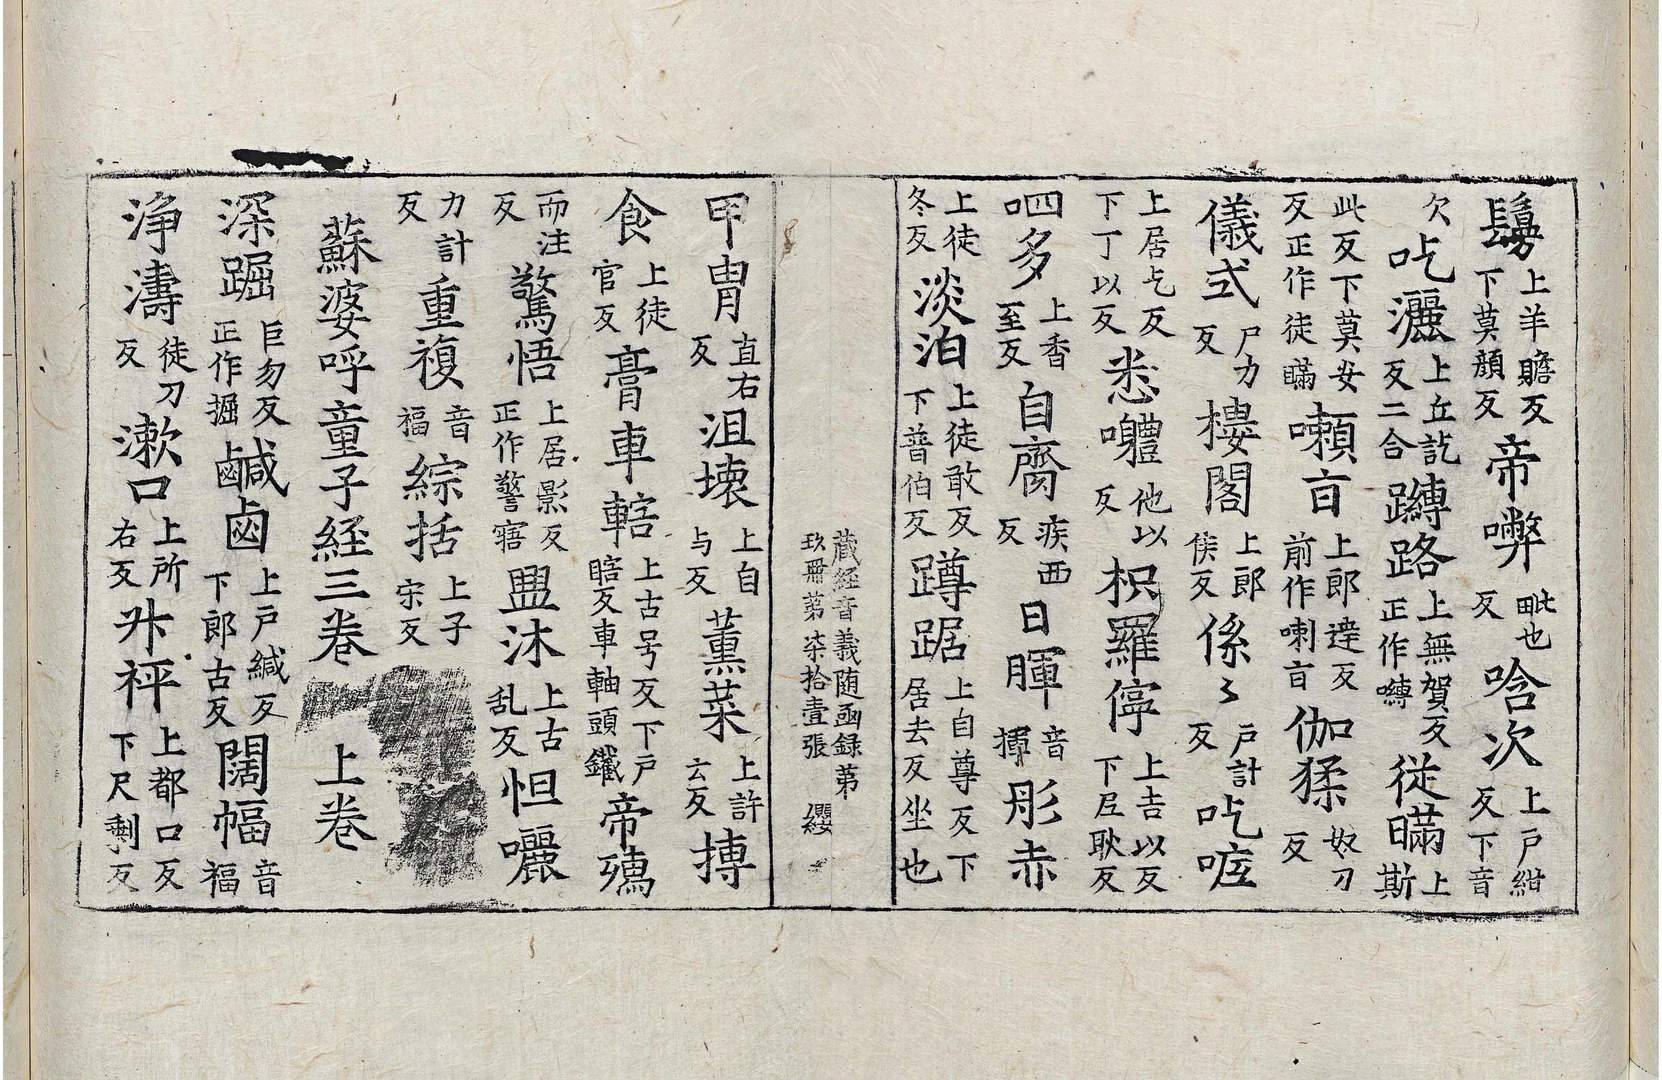 鬘上羊贍反下莫顔反帝嚩毗也反唅次上戸紺反下音
欠吃灑上丘訖反二合𨇾路上無賀反正作嚩從瞞上斯
此反下莫安反正作徒瞞嚩盲上郎達反前作喇盲伽猱奴刀反
儀式尸力反樓閣上郎侯反係〻戸計反吃㗌
上居乞反下丁以反悉㘑他以反枳羅停上吉以反下㞐耿反
呬多上香至反自臍疾西反日暉音揮彤赤
上徒冬反淡泊上徒敢反下普伯反蹲踞上自尊反下居去反坐也
藏経音義随函録第玖冊第柒拾壹張 纓
甲冑直右反沮壊上自与反薫菜上許云反摶
食上徒官反膏車轄上古号反下戸瞎反車軸頭鐵帝𣩠
而注反驚悟上居影反正作警寤盥沐上古乱反怛囇
力計反重複音福綜括上子宋反
蘇婆呼童子経三卷 上卷
深䠇巨勿反正作掘鹹鹵上戸緘反下郎古反闊幅音福
浄濤徒刀反漱口上所右反升秤上都口反下尺剩反